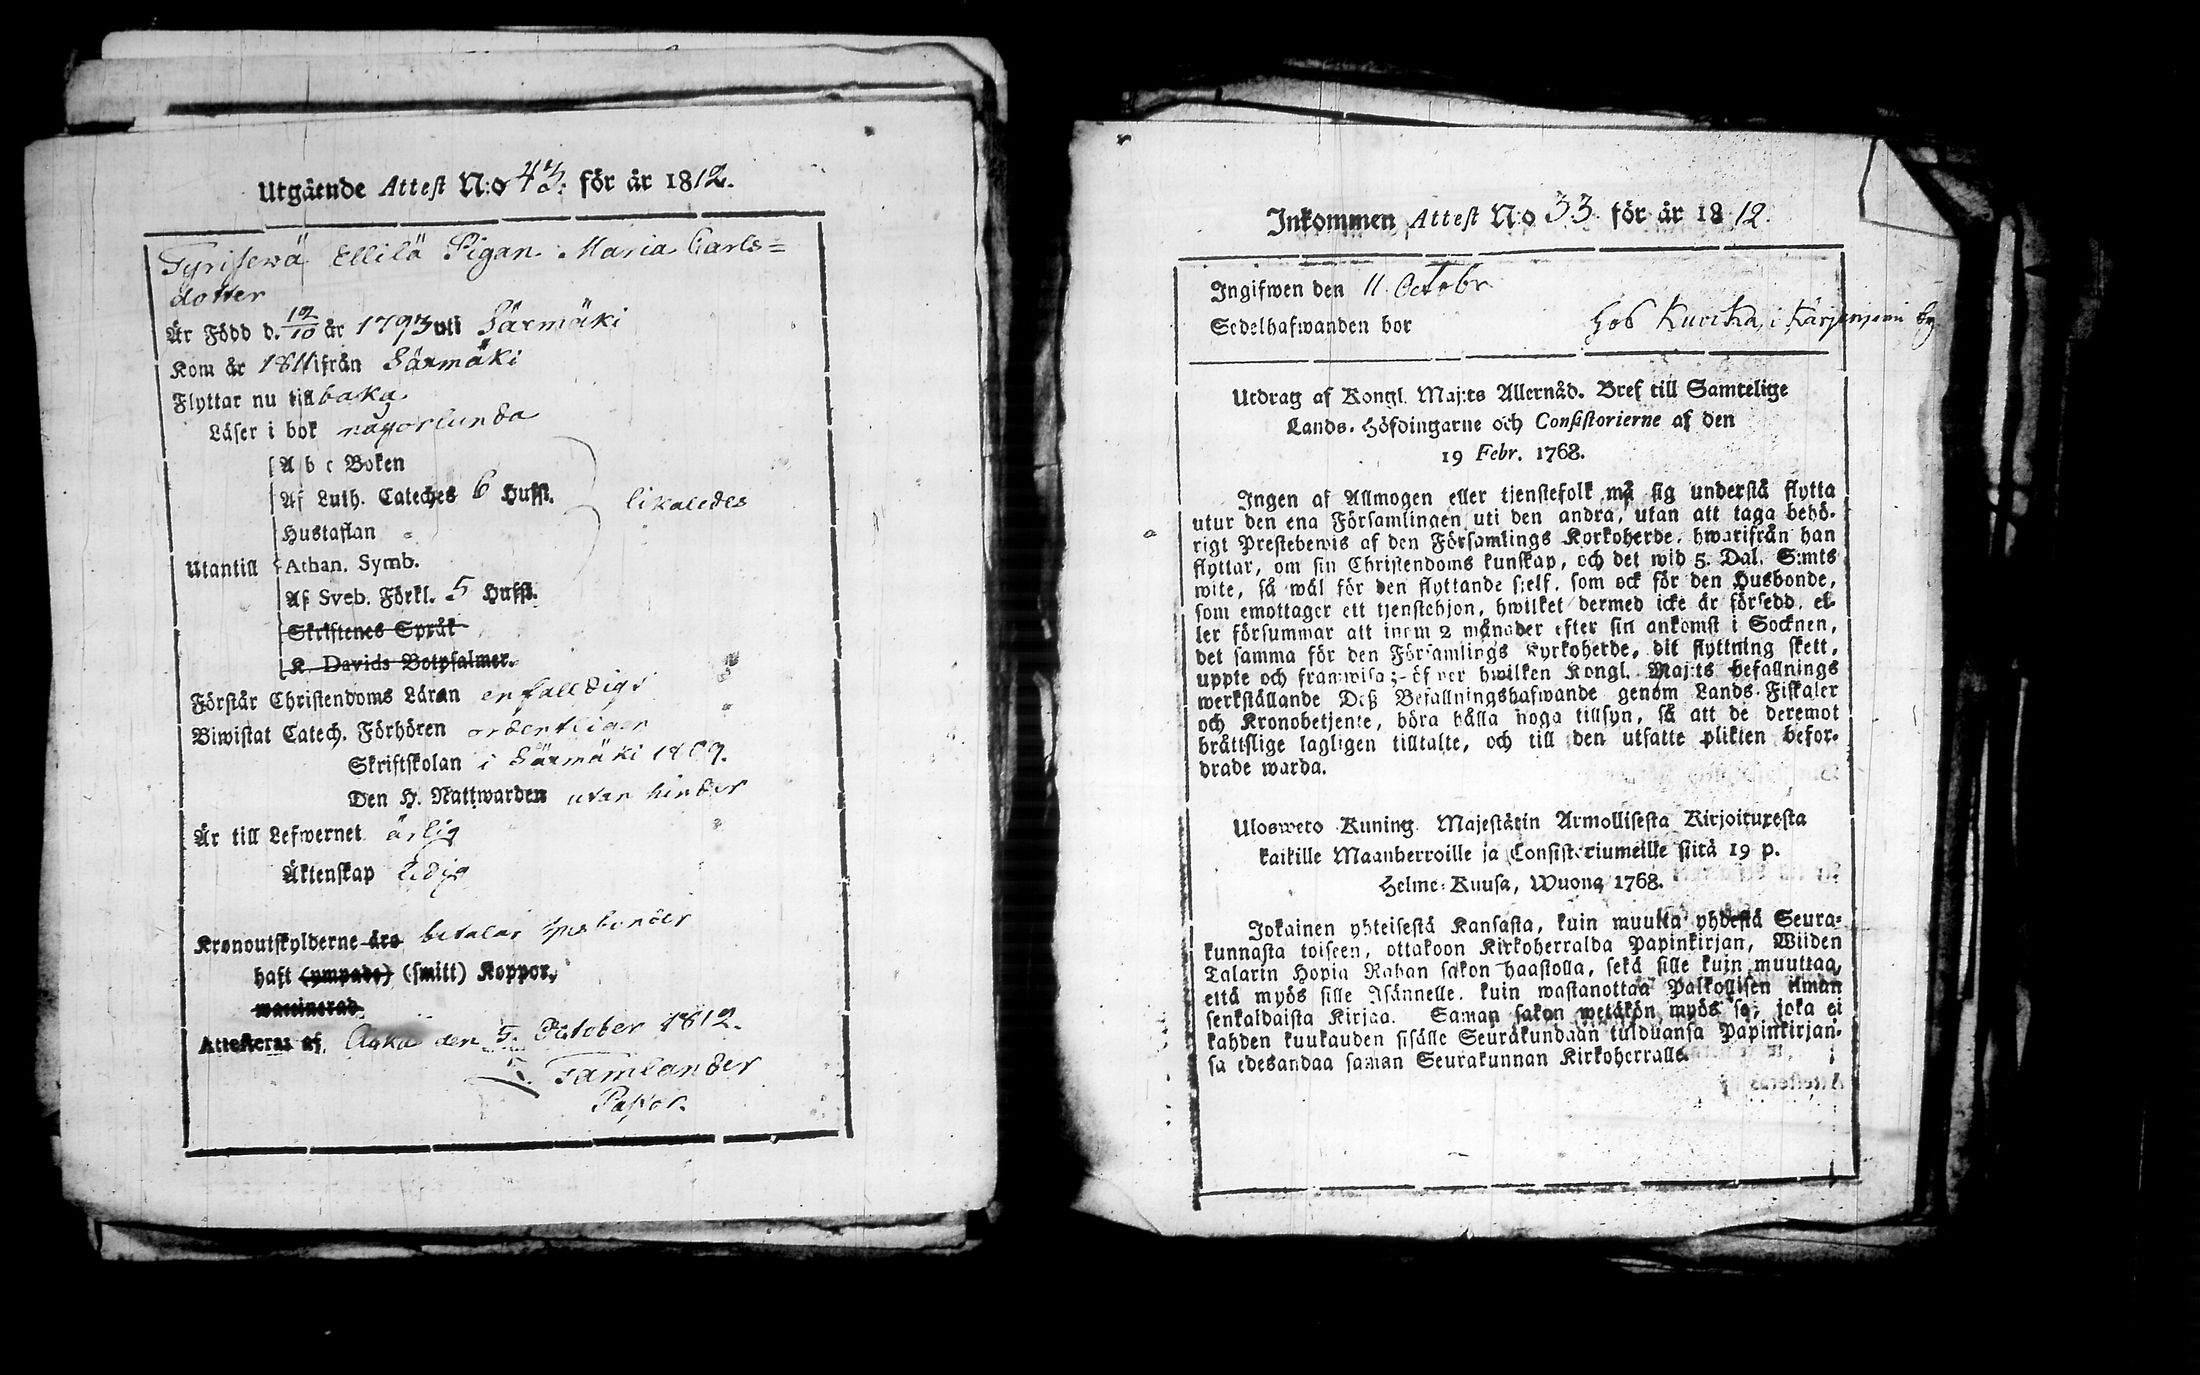 Utgående Attest N:o 43. för år 1812.
Tyrisewä Ellilä Pigan Maria Carls=
dotter
Är Född d. 12/10 år 1793 uti Säxmäki
Kom år 1811 ifrån Säxmäki
Flyttar nu tillbaka
Läser i bok någorlunda
A b c Boken
Af Luth. Cateches 6 Hufst.
likaledes
Hustaflan
Utantill Athan. Symb.
Af Sveb. Förkl. 5 Hufst.
Skriftenes Språk
K. Davids Botpsalmer.
Förstår Christendoms Läran enfalldigt
Biwistat Catech. Förhören ordentligen
Skriftskolan i Säxmäki 1809.
Den H. Nattwarden utan hinder
Är till Lefwernet ärlig
Äktenskap ledig
Kronoutskylderne äro betalar husbonder
haft (ympade) (smitt) Koppor,
waccinerad.
Attesteras af den 5. October 1812.
Tamlander
Pastor.
Inkommen Attest N:o 33 för år 1812.
Ingifwen den 11 Octobr
Sedelhafwanden bor hos i by
Utdrag af Kongl. Maj:ts Allernåd. Bref till Samtelige
Lands-Höfdingarne och Consistorierne af den
19 Febr. 1768.
Ingen af Allmogen eller tjenstefolk må sig understå flytta
utur den ena Församlingen uti den andra, utan att taga behö-
rigt Prestebewis af den Församlings Korkoherde, hwarifrån han
flyttar, om sin Christendoms kunskap, och det wid 5. Dal. S:mts
wite, så wäl för den flyttande sjelf, som ock för den Husbonde,
som emottager ett tjenstehjon, hwilket dermed icke är försedd, el-
ler försummar att inom 2 månader efter sin ankomst i Socknen,
det samma för den Församlings Kyrkoherde, dit flyttning skett,
uppte och framwisa; öfwer hwilken Kongl. Maj:ts befallnings
werkställande Deß Befallningshafwande genom Lands-Fiskaler
och Kronobetjente, böra hålla noga tillsyn, så att de deremot
bråttslige lagligen tilltalte, och till den utsatte plikten befor-
drade warda.
Uloswero Kuning. Majestätin Armollisesta Kirjoituxesta
kaikille Maanherroille ja Consistoriumeille siitä 19 p.
Helme-Kuusa, Wuona 1768.
Jokainen yhteisestä Kansasta, kuin muutta yhdestä Seura-
kunnasta toiseen, ottakoon Kirkoherralda Papinkirjan, Wiiden
Talarin Hopia Rahan sakon haastolla, sekä sille kuin muuttaa,
että myös sille Isännelle, kuin wastanottaa Palkollisen ilman
senkaldaista Kirjaa. Saman sakon wetäkön myös se, joka ei
kahden kuukauden sisälle Seurakundaan tulduansa Papinkirjan-
sa edesandaa saman Seurakunnan Kirkoherralle.